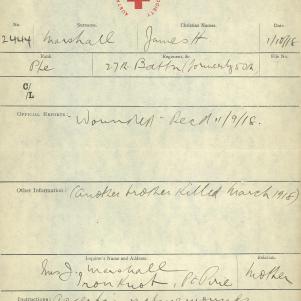 No. Surname. Christian Names. Date
2444 Marshall James H 1/10/18
Rank Regiment, &c. File No.
Pte 27th Battn (formerly 50th
C/
/L
OFFICIAL REPORTS:- Wounded - Recd 11/9/18.
Other Information: (Another brother killed March 1918)
Inquirer's Name and Address. Relation.
Mrs J. Marshall Mother
Iron Knob, Pt Pirie
Instructions: